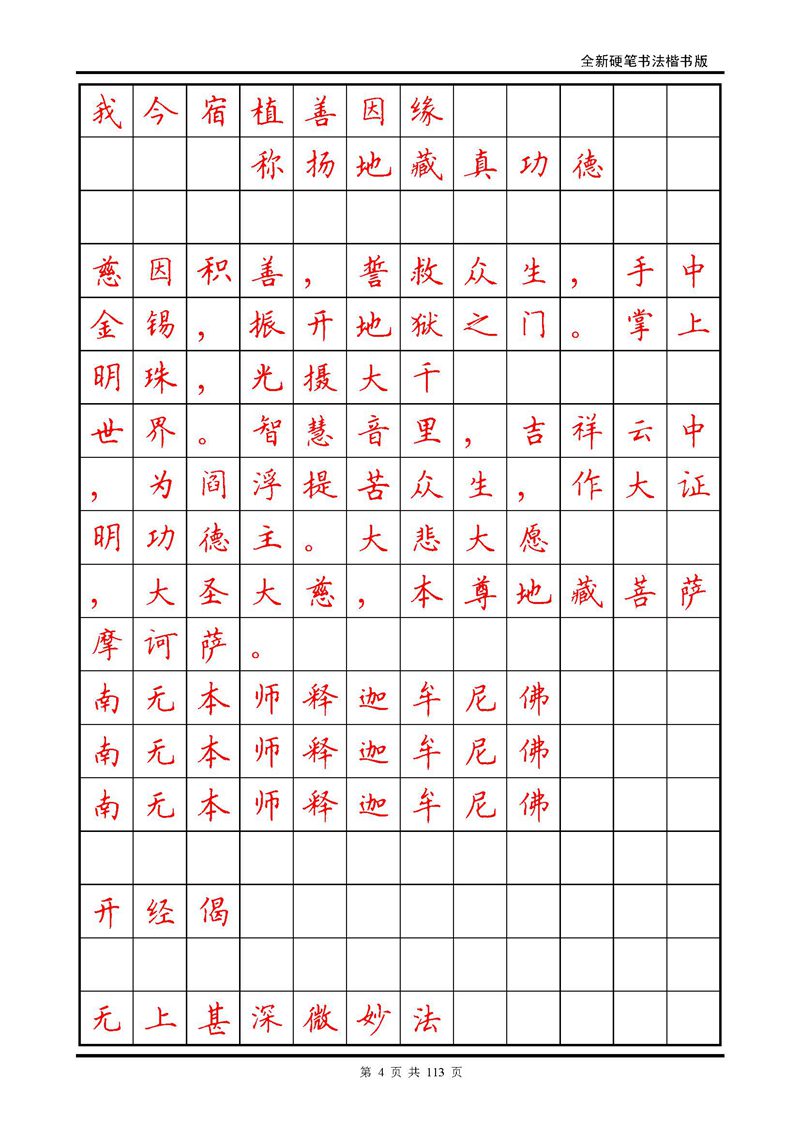 全新硬笔书法楷书版
我今宿植善因缘
称扬地藏真功德
慈因积善，誓救众生，手中
金锡，振开地狱之门。掌上
明珠，光摄大千
世界。智慧音里，吉祥云中
，为阎浮提苦众生，作大证
明功德主。大悲大愿
，大圣大慈，本尊地藏菩萨
摩诃萨。
南无本师释迦牟尼佛
南无本师释迦牟尼佛
南无本师释迦牟尼佛
开经偈
无上甚深微妙法
第 4 页 共 113 页